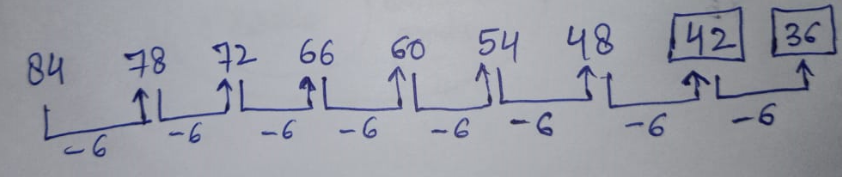 84 78 72 66 60 54 48 42 36
-6 -6 -6 -6 -6 -6 -6 -6